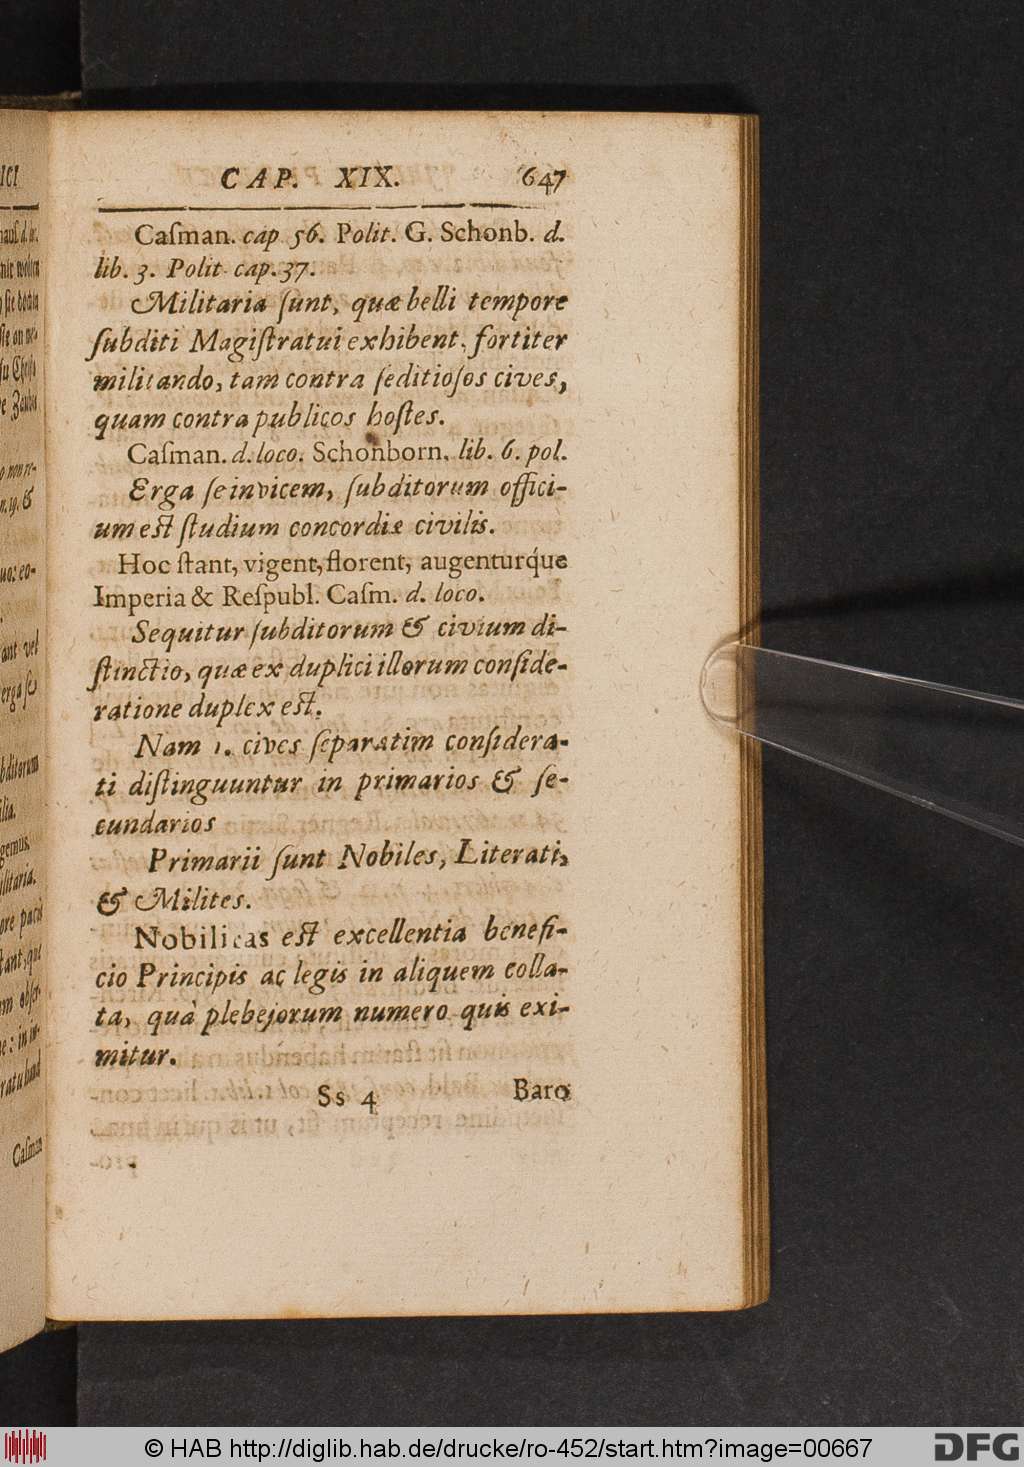 CAP. XIX. 647
Caſman. cap 56. Polit. G. Schonb. d.
lib. 3. Polit cap. 37.
Militaria ſunt, quæ belli tempore
ſubditi Magiſtratui exhibent, fortiter
militando, tam contra ſeditioſos cives,
quam contra publicos hoſtes.
Caſman. d. loco. Schonborn. lib. 6. pol.
Erga ſe invicem, ſubditorum offici-
um est ſtudium concordiæ civilis.
Hoc ſtant, vigent, florent, augenturq́ue
Imperia & Reſpubl. Caſm. d. loco.
Sequitur ſubditorum & civium di-
ſtinctio, quæ ex duplici illorum conſide-
ratione duplex est.
Nam 1. cives ſeparatim conſidera-
ti diſtinguuntur in primarios & ſe-
cundarios
Primarii ſunt Nobiles, Literati,
& Milites.
Nobilitas est excellentia benefi-
cio Principis ac legis in aliquem colla-
ta, quà plebejorum numero quis exi-
mitur.
Ss 4 Baro
ICI
vel
erga ſe
bditorum
ilia.
militaria.
ore pacis
Caſman
© HAB http://diglib.hab.de/drucke/ro-452/start.htm?image=00667
DFG